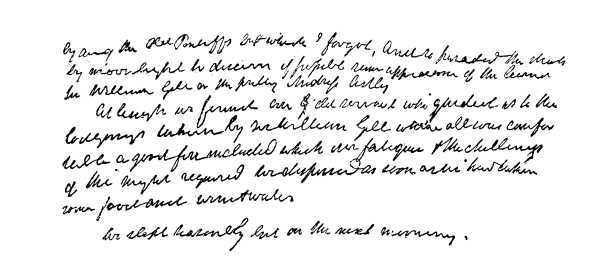 by and the old Pontiffs but which I forgot, and so paraded the streets
by moonlight to discern if possible some appearance of the learned
Sir William Gell or the pretty Andrew Ashley
At length we found an old servant who guided us to the
lodgings taken by Sir William Gell where all was comfor
table a good fire included which our fatigue & the chilliness
of the night required we dispersed as soon as we had taken
some food and wine & water
We slept reasonably but on the next morning.